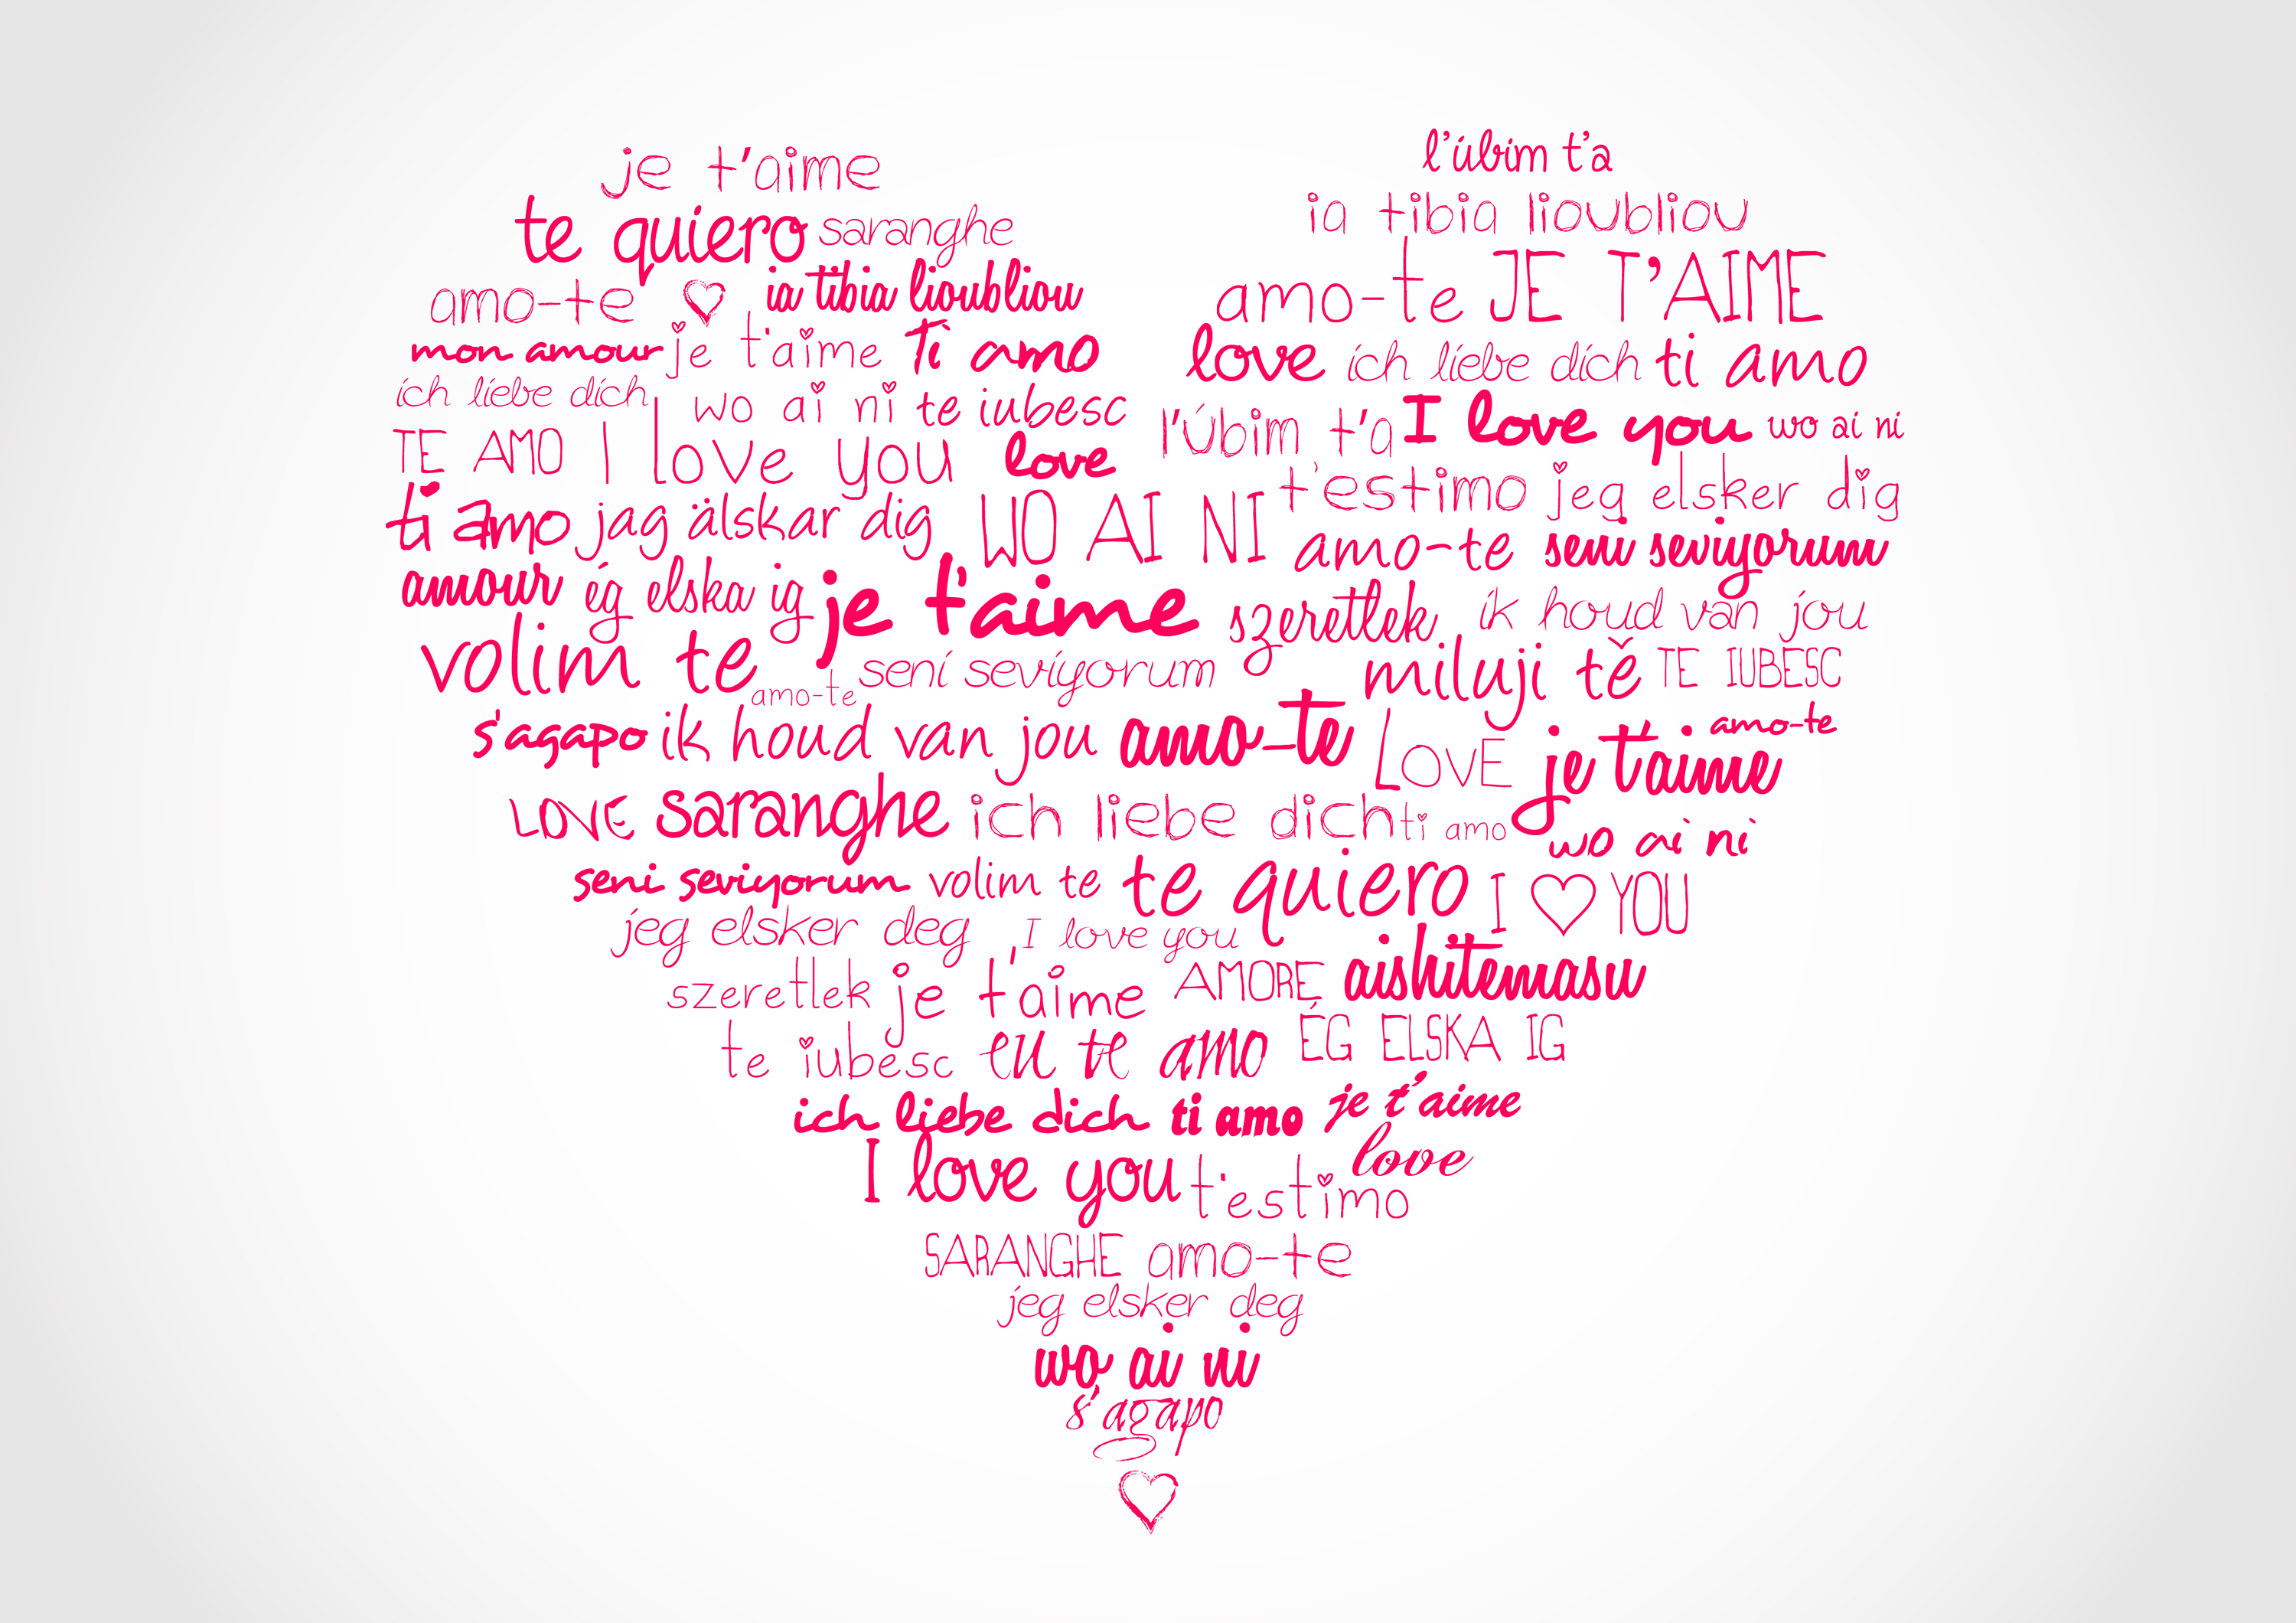 je t'aime
l'úbim t'a
te quiero saranghe
ia tibia lioubliou
amo-te ia tibia lioubliou
amo-te JE T'AIME
mon amour je t'aime Ti amo
love ich liebe dich ti amo
ich liebe dich wo ai ni te iubesc
l'Úbim t'a I love you wo ai ni
TE AMO I love you love
t'estimo jeg elsker dig
ti amo jag älskar dig WO AI NI
amo-te seni seviyorum
amour ég elska ig je t'aime szeretlek ik houd van jou
volim te amo-te seni seviyorum miluji tě TE IUBESC
s'agapo ik houd van jou amo-te LOVE je t'aime amo-te
LOVE saranghe ich liebe dich ti amo wo ai ni
seni seviyorum volim te te quiero I YOU
jeg elsker deg I love you
szeretlek je t'aime AMORE aishitemasu
te iubesc eu te amo ÉG ELSKA IG
ich liebe dich ti amo je t'aime
I love you t'estimo love
SARANGHE amo-te
jeg elsker deg
wo ai ni
s'agapo